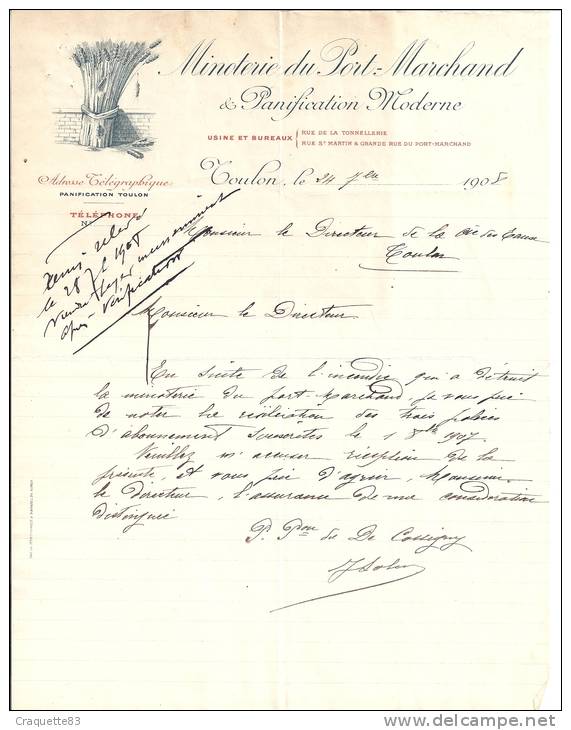 Minoterie du Port-Marchand
& Panification Moderne
USINE ET BUREAUX
RUE DE LA TONNELLERIE
RUE St MARTIN & GRANDE RUE DU PORT-MARCHAND
Adresse Télégraphique
PANIFICATION TOULON
TÉLÉPHONE
N
Toulon, le 24 7bre 1908
le 28 1908
après vérification
Monsieur le Directeur de la Cie des Eaux
Toulon
Monsieur le Directeur
En suite de l'incendie qui a détruit
la minoterie du port-Marchand je vous prie
de noter la résiliation des trois polices
d'abonnement souscrites le 1 8bre 1907.
Veuillez m'accuser réception de la
présente, et vous prie d'agréer, Monsieur
le directeur, l'assurance de ma considération
distinguée
P. Pon de De Cossigny
Craquette83
www.delcampe.net